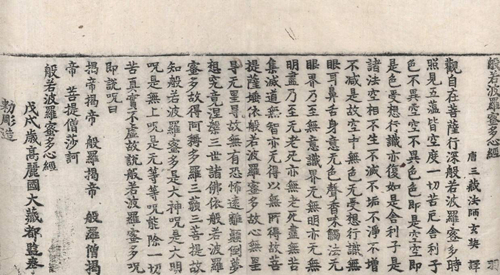 般若波羅蜜多心經
唐三藏法師玄奘 譯
觀自在菩薩行深般若波羅蜜多時
照見五蘊皆空度一切苦厄舍利子
色不異空空不異色色即是空空即
是色受想行識亦復如是舍利子是
諸法空相不生不滅不垢不淨不增
不減是故空中無色無受想行識無
眼耳鼻舌身意無色聲香味觸法無
眼界乃至無意識界無無明亦無無
明盡乃至無老死亦無老死盡無苦
集滅道無智亦無得以無所得故菩
提薩埵依般若波羅蜜多故心無罣
㝵無罣㝵故無有恐怖遠離顚倒夢
想究竟涅槃三世諸佛依般若波羅
蜜多故得阿耨多羅三藐三菩提故
知般若波羅蜜多是大神呪是大明
呪是無上呪是無等等呪能除一切
苦眞實不虛故說般若波羅蜜多呪
即說呪曰
揭帝揭帝 般羅揭帝 般羅僧揭
帝 菩提僧莎訶
般若波羅蜜多心經
戊戌歲高麗國大藏都監奉
勅彫造